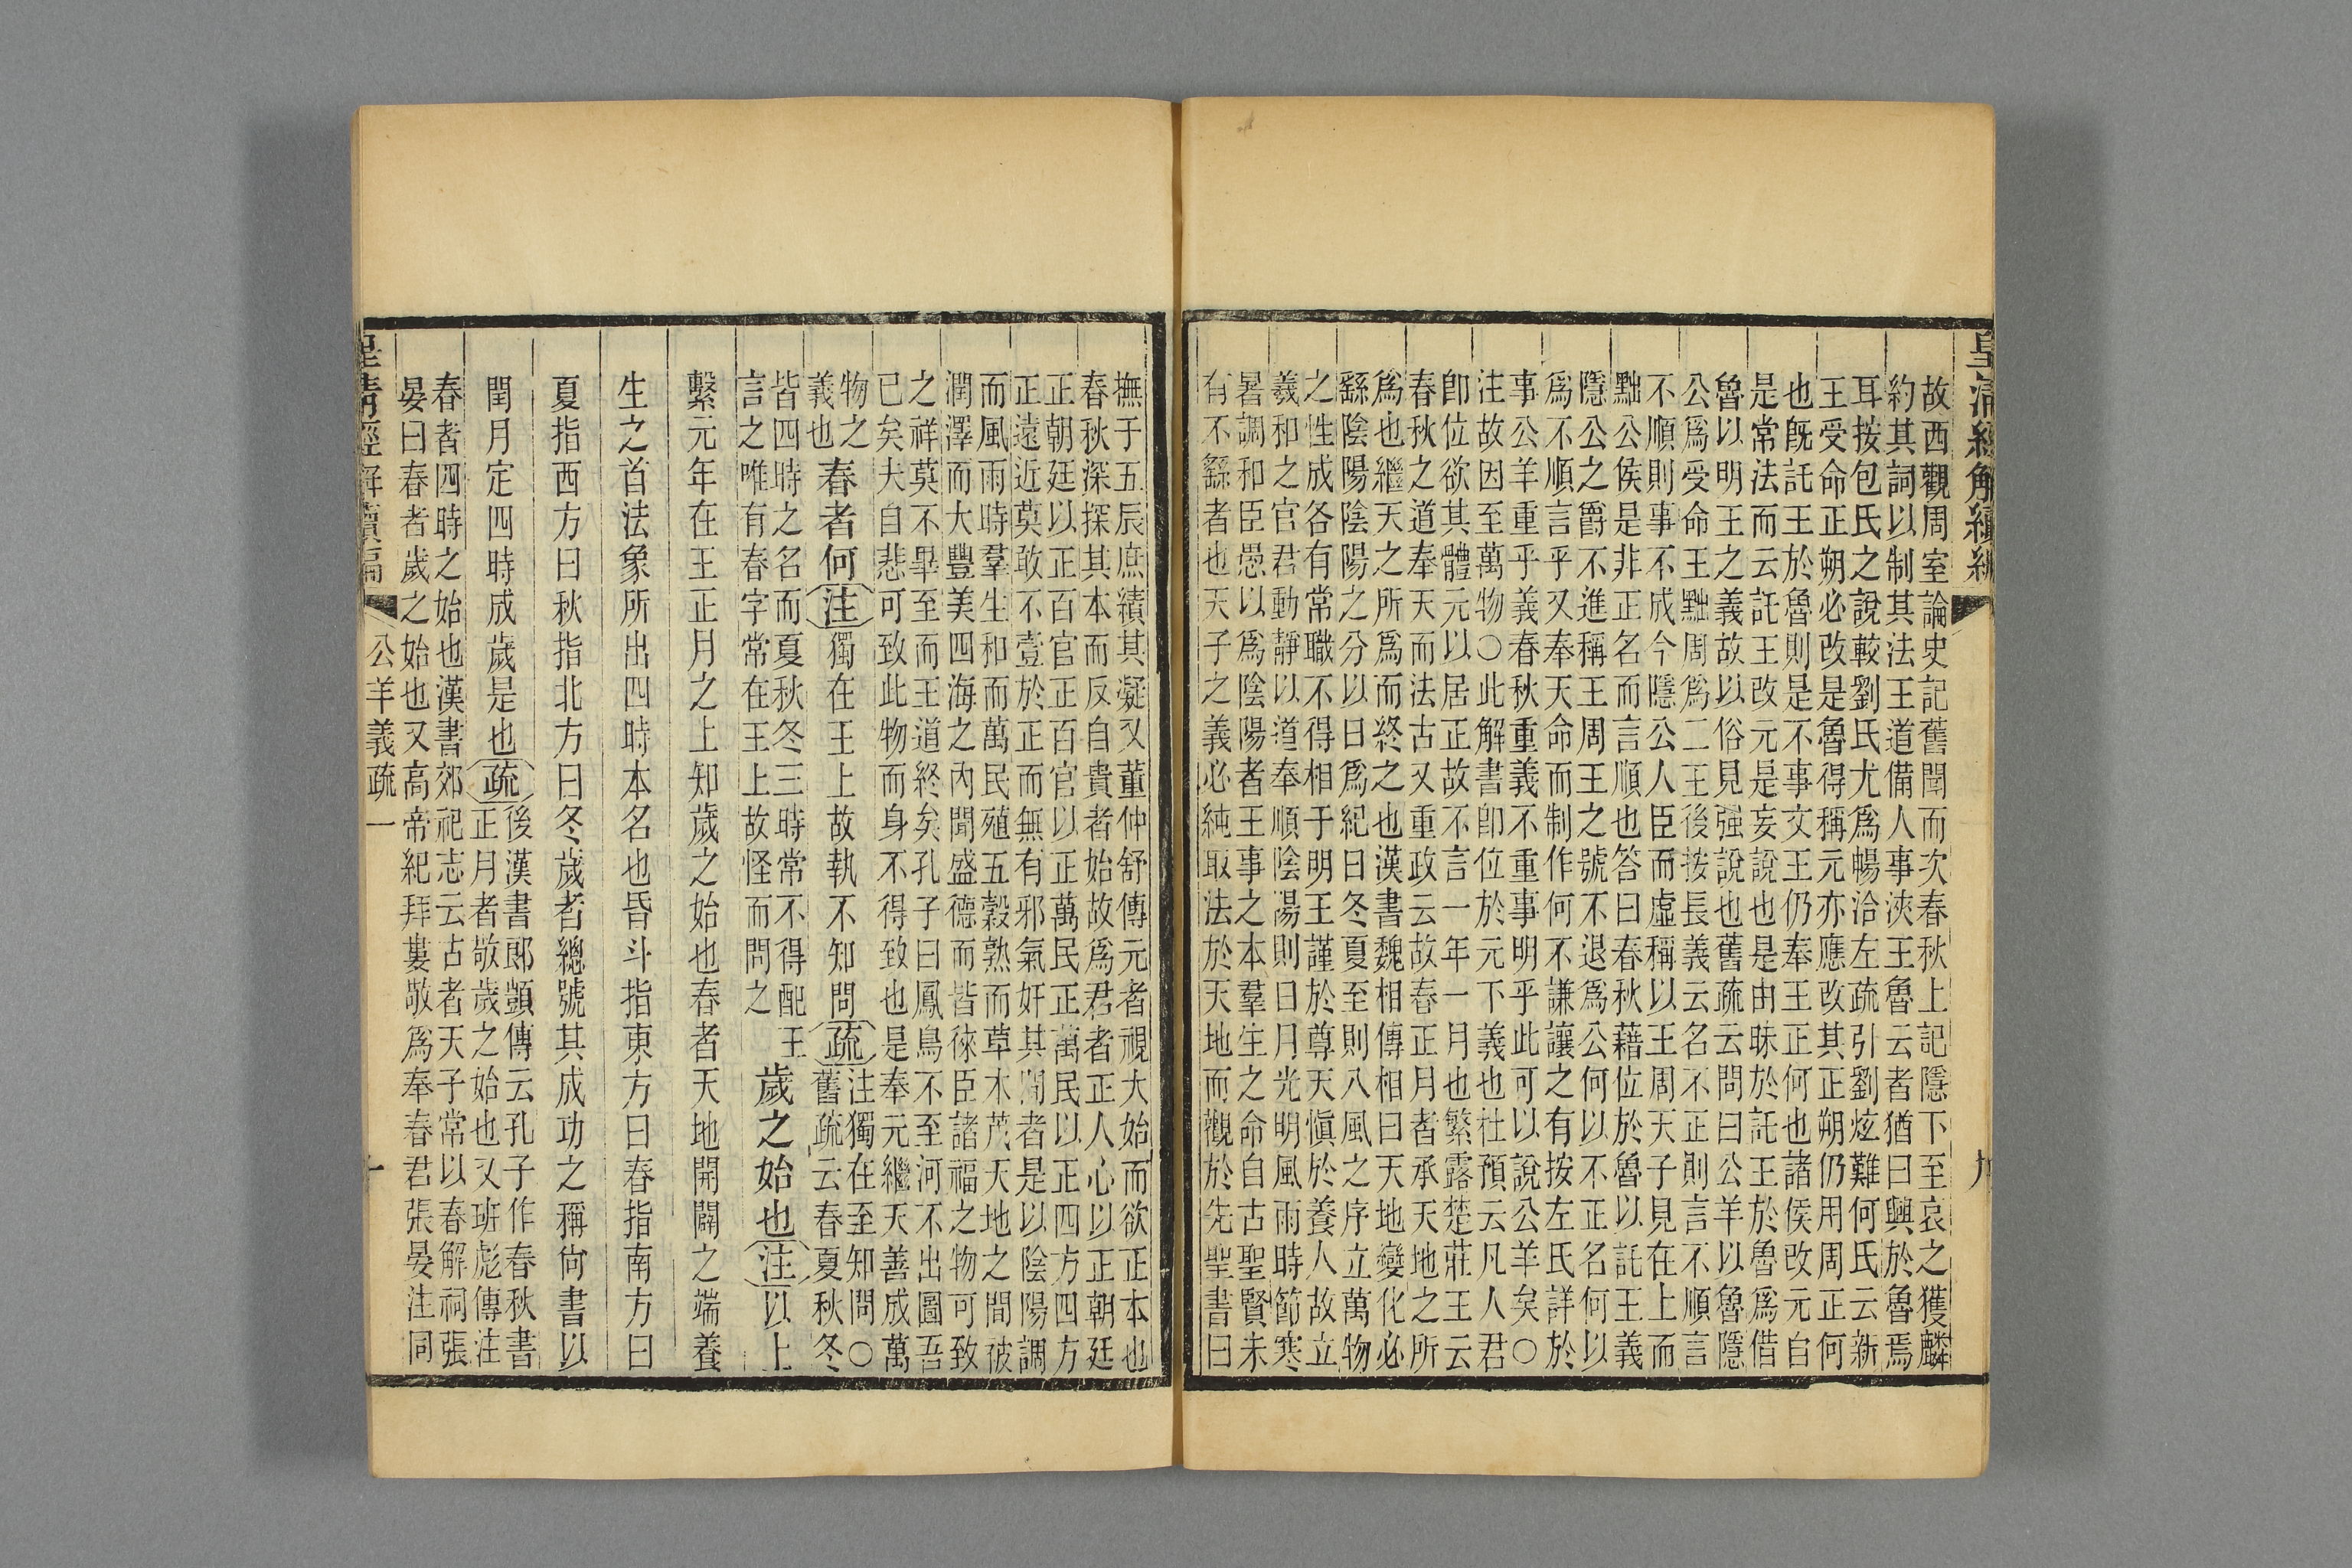 皇清經解續編
故西觀周室論史記舊聞而次春秋上記隱下至哀之獲麟
約其詞以制其法王道備人事浹王魯云者猶曰興於魯焉
耳按包氏之說較劉氏尤爲暢洽左疏引劉炫難何氏云新
王受命正朔必改是魯得稱元亦應改其正朔仍用周正何
也旣託王於魯則是不事文王仍奉王正何也諸侯改元自
是常法而云託王改元是妄說也是由昧於託王於魯爲借
魯以明王之義故以俗見强說也舊疏云問曰公羊以魯隱
公爲受命王黜周爲二王後按長義云名不正則言不順言
不順則事不成今隱公人臣而虛稱以王周天子見在上而
黜公侯是非正名而言順也答曰春秋藉位於魯以託王義
隱公之爵不進稱王周王之號不退爲公何以不正名何以
爲不順言乎又奉天命而制作何不謙讓之有按左氏詳於
事公羊重乎義春秋重義不重事明乎此可以說公羊矣○
注故因至萬物○此解書卽位於元下義也杜預云凡人君
卽位欲其體元以居正故不言一年一月也繁露楚莊王云
春秋之道奉天而法古又重政云故春正月者承天地之所
爲也繼天之所爲而終之也漢書魏相傳相曰天地變化必
繇陰陽陰陽之分以日爲紀日冬夏至則八風之序立萬物
之性成各有常職不得相于明王謹於尊天愼於養人故立
羲和之官君動靜以道奉順陰陽則日月光明風雨時節寒
暑調和臣愚以爲陰陽者王事之本羣生之命自古聖賢未
有不繇者也天子之義必純取法於天地而觀於先聖書曰
撫于五辰庶績其凝又董仲舒傳元者視大始而欲正本也
春秋深探其本而反自貴者始故爲君者正人心以正朝廷
正朝廷以正百官正百官以正萬民正萬民以正四方四方
正遠近莫敢不壹於正而無有邪氣奸其間者是以陰陽調
而風雨時羣生和而萬民殖五穀熟而草木茂天地之間被
潤澤而大豐美四海之內聞盛德而皆徠臣諸福之物可致
之祥莫不畢至而王道終矣孔子曰鳳鳥不至河不出圖吾
已矣夫自悲可致此物而身不得致也是奉元繼天善成萬
物之
義也
春者何注獨在王上故執不知問疏
注獨在至知問○
舊疏云春夏秋冬
皆四時之名而夏秋冬三時常不得配王
言之唯有春字常在王上故怪而問之
歲之始也注以上
繫元年在王正月之上知歲之始也春者天地開闢之端養
生之首法象所出四時本名也昏斗指東方曰春指南方曰
夏指西方曰秋指北方曰冬歲者總號其成功之稱尙書以
閏月定四時成歲是也疏
後漢書郎顗傳云孔子作春秋書
正月者敬歲之始也又班彪傳注
春者四時之始也漢書郊祀志云古者天子常以春解祠張
晏曰春者歲之始也又高帝紀拜婁敬爲奉春君張晏注同
公羊義疏一